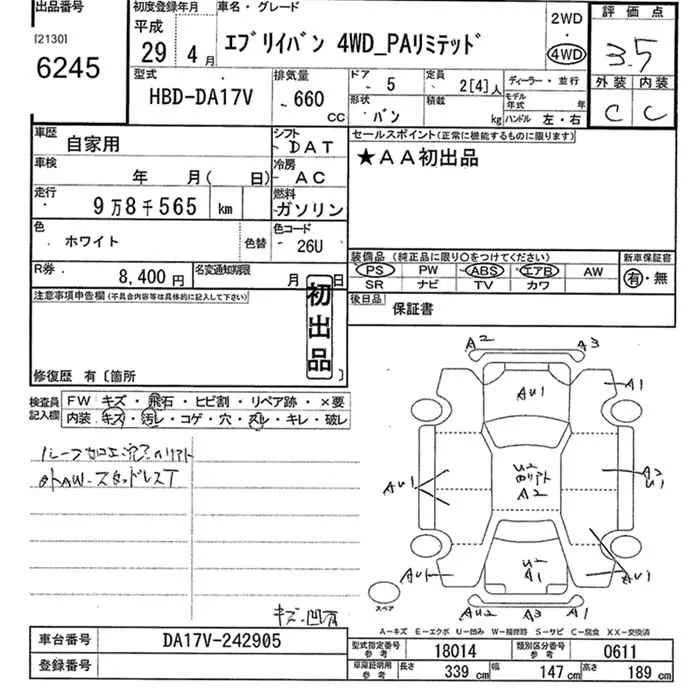 出品番号 初度登録年月 車名・グレード 評価点
[2130] 平成 2WD 3.5
6245 29 4月 エブリイバン 4WD_PAリミテッド 4WD
外装 内装
型式 排気量 ドア 5 定員 2[4]人 ディーラー・並行 C C
HBD-DA17V 660 CC 形状 バン 積載 kg モデル年式 年 ハンドル 左・右
車歴 自家用 シフト DAT セールスポイント(正常に機能するものに限ります)
車検 年 月( 日) 冷房 AC ★AA初出品
走行 9万8千565 km 燃料 ガソリン
色 ホワイト 色替 色コード 26U
装備品 (純正品に限り○をつけてください) 新車保証書
R券 8,400円 名変通知期限 月 日 PS PW ABS エアB AW 有・無
SR ナビ TV カワ
注意事項申告欄(不具合内容等は具体的に記入して下さい) 初出品 後日品 保証書
修復歴 有〔箇所 〕
検査員記入欄 FW キズ・飛石・ヒビ割・リペア跡・×要
内装 キズ・汚レ・コゲ・穴・スレ・キレ・破レ
外AW・スタッドレスT
キズ・凹有
A2 A3
AU1 A1
AU1 U2 A2 A2 U1
AU1 U2 A1 AU1
スペア AU2 A3 A1
A-キズ E-エクボ U-凹み W-補修跡 S-サビ C-腐食 XX-交換済
車台番号 DA17V-242905 型式指定番号 参考 18014 類別区分番号 参考 0611
登録番号 車庫証明用 参考 長さ 339 cm 幅 147 cm 高さ 189 cm